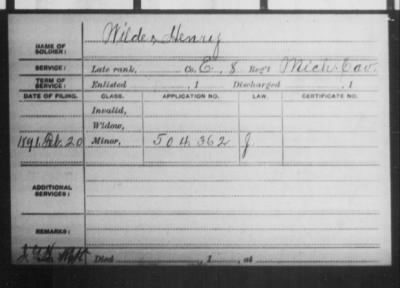 NAME OF SOLDIER: Wilder Henry
SERVICE: Late rank, Co. E, 8 Reg't Mich. Cav.
TERM OF SERVICE: Enlisted , 1 Discharged , 1
DATE OF FILING. CLASS. APPLICATION NO. LAW. CERTIFICATE NO.
Invalid,
Widow,
1891 Feb. 20 Minor, 504.362 J
ADDITIONAL SERVICES:
REMARKS:
Died , 1 , at